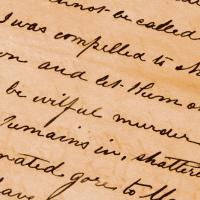 not be called
I was compelled to
and let them
be wilful murder
Remains in, shattere
mated gore to
have